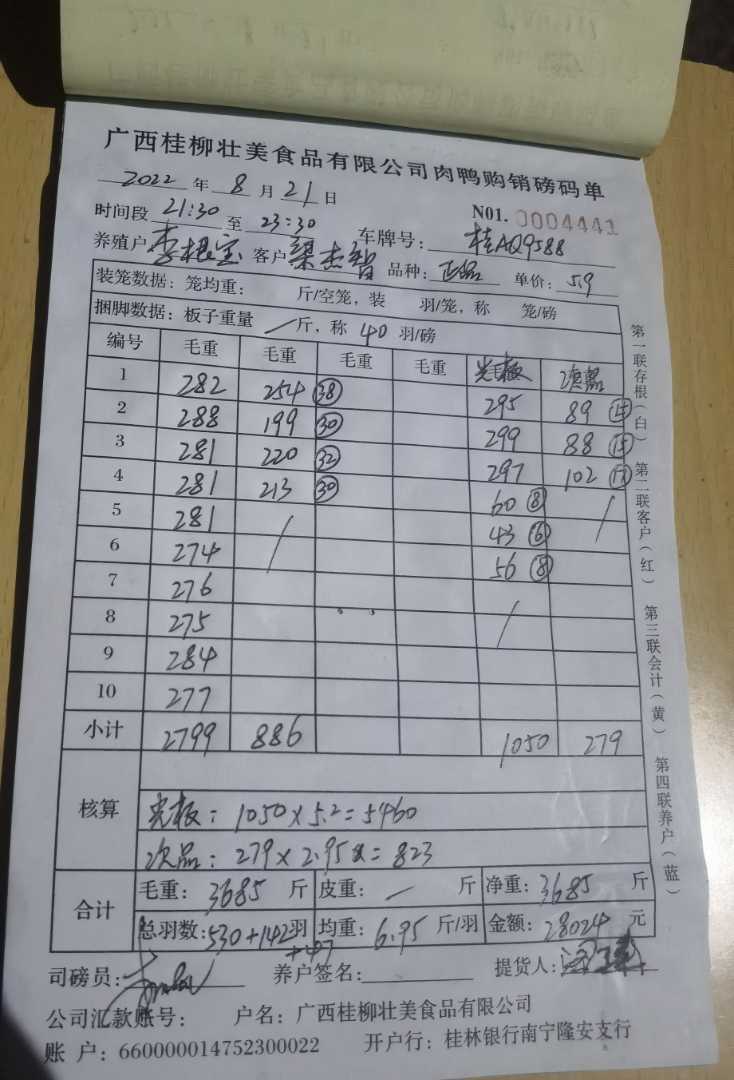 广西桂柳壮美食品有限公司肉鸭购销磅码单
2022 年 8 月 21 日
N01. 0004441
时间段 21:30 至 23:30 车牌号: 桂AQ9588
养殖户 李根宝 客户 梁杰智 品种: 正品 单价: 5.9
装笼数据: 笼均重: 斤/空笼, 装 羽/笼, 称 笼/磅
捆脚数据: 板子重量 / 斤, 称 40 羽/磅
编号 毛重 毛重 毛重 毛重 光板 次品
1 282 254 38 295 89 15
2 288 199 30 299 88 15
3 281 220 32 297 102 17
4 281 213 30 60 8 /
5 281 / 43 6
6 274 56 8
7 276
8 275 /
9 284
10 277
小计 2799 886 1050 279
核算
光板: 1050×5.2=5460
次品: 279×2.95=823
合计 毛重: 3685 斤 皮重: 一 斤 净重: 3685 斤
总羽数: 530+142羽 +47 均重: 6.95 斤/羽 金额: 28024 元
司磅员: 养户签名: 提货人:
公司汇款账号: 户名: 广西桂柳壮美食品有限公司
账 户: 660000014752300022 开户行: 桂林银行南宁隆安支行
第一联存根(白) 第二联客户(红) 第三联会计(黄) 第四联养户(蓝)